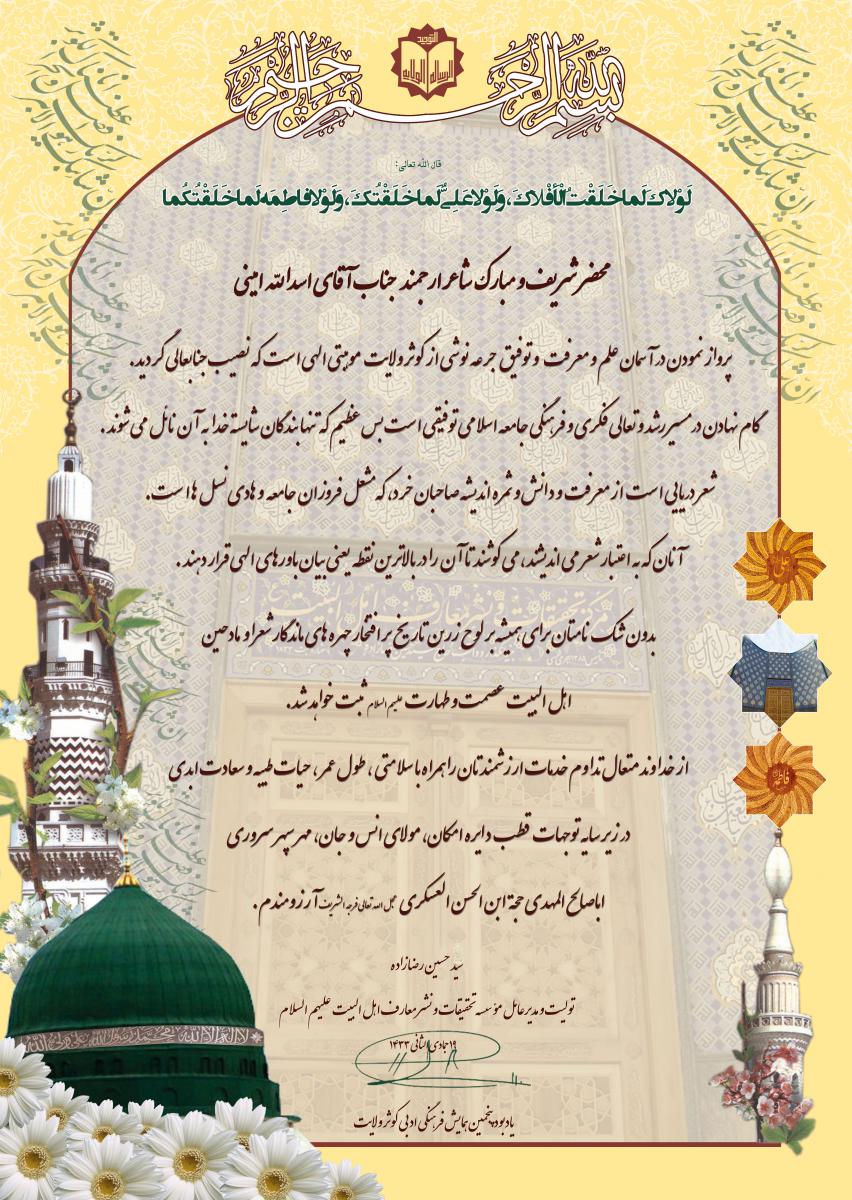 بسم الله الرحمن الرحیم
التوحید
الرساله الولایه
قال الله تعالی:
لَوْلاكَ لَما خَلَقْتُ الْأَفْلاكَ، وَلَوْلا عَلِيٌّ لَما خَلَقْتُكَ، وَلَوْلا فاطِمَه لَما خَلَقْتُكُما
محضر شریف و مبارک شاعر ارجمند جناب آقای اسدالله امینی
پرواز نمودن در آسمان علم و معرفت و توفیق جرعه نوشی از کوثر ولایت موهبتی الهی است که نصیب جنابعالی گردید.
گام نهادن در مسیر رشد و تعالی فکری و فرهنگی جامعه اسلامی توفیقی است بس عظیم که تنها بندگان شایسته خدا به آن نائل می شوند.
شعر دریایی است از معرفت و دانش و ثمره اندیشه صاحبان خرد، که مشعل فروزان جامعه و هادی نسل هاست.
آنان که به اعتبار شعر می اندیشند، می کوشند تا آن را در بالاترین نقطه یعنی بیان باورهای الهی قرار دهند.
بدون شک نامتان برای همیشه بر لوح زرین تاریخ پر افتخار چهره های ماندگار شعرا و مادحین
اهل البیت عصمت و طهارت علیهم السلام ثبت خواهد شد.
از خداوند متعال تداوم خدمات ارزشمندتان را همراه با سلامتی، طول عمر، حیات طیبه و سعادت ابدی
در زیر سایه توجهات قطب دایره امکان، مولای انس و جان، مهر سپهر سروری
اباصالح المهدی حجة ابن الحسن العسکری عجل الله تعالی فرجه الشریف آرزومندم.
سید حسین رضازاده
تولیت و مدیر عامل مؤسسه تحقیقات و نشر معارف اهل البیت علیهم السلام
۱۹ جمادی الثانی ۱۴۳۳
یادبود پنجمین همایش فرهنگی ادبی کوثر ولایت
علی
فاطمه